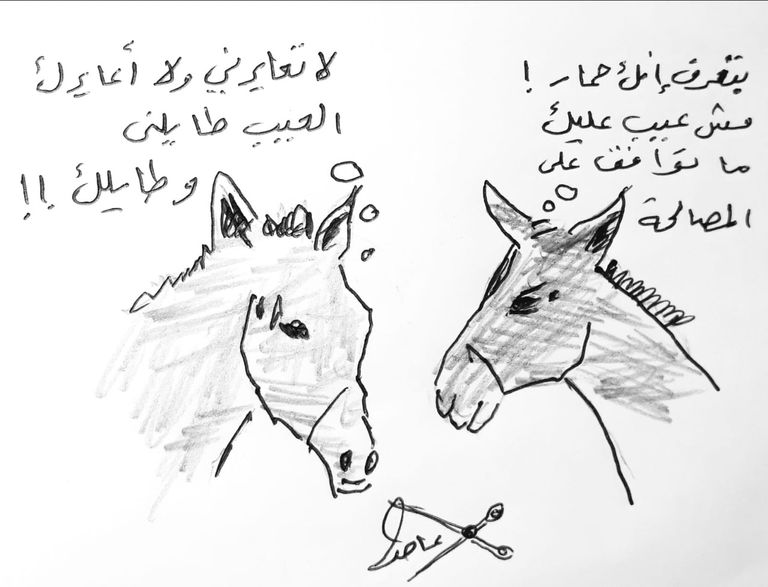 بتعرف إنك حمار !
مش عيب عليك
ما توافق على
المصالحة
لا تعايرني ولا أعايرك
العيب طايلني
وطايلك !!